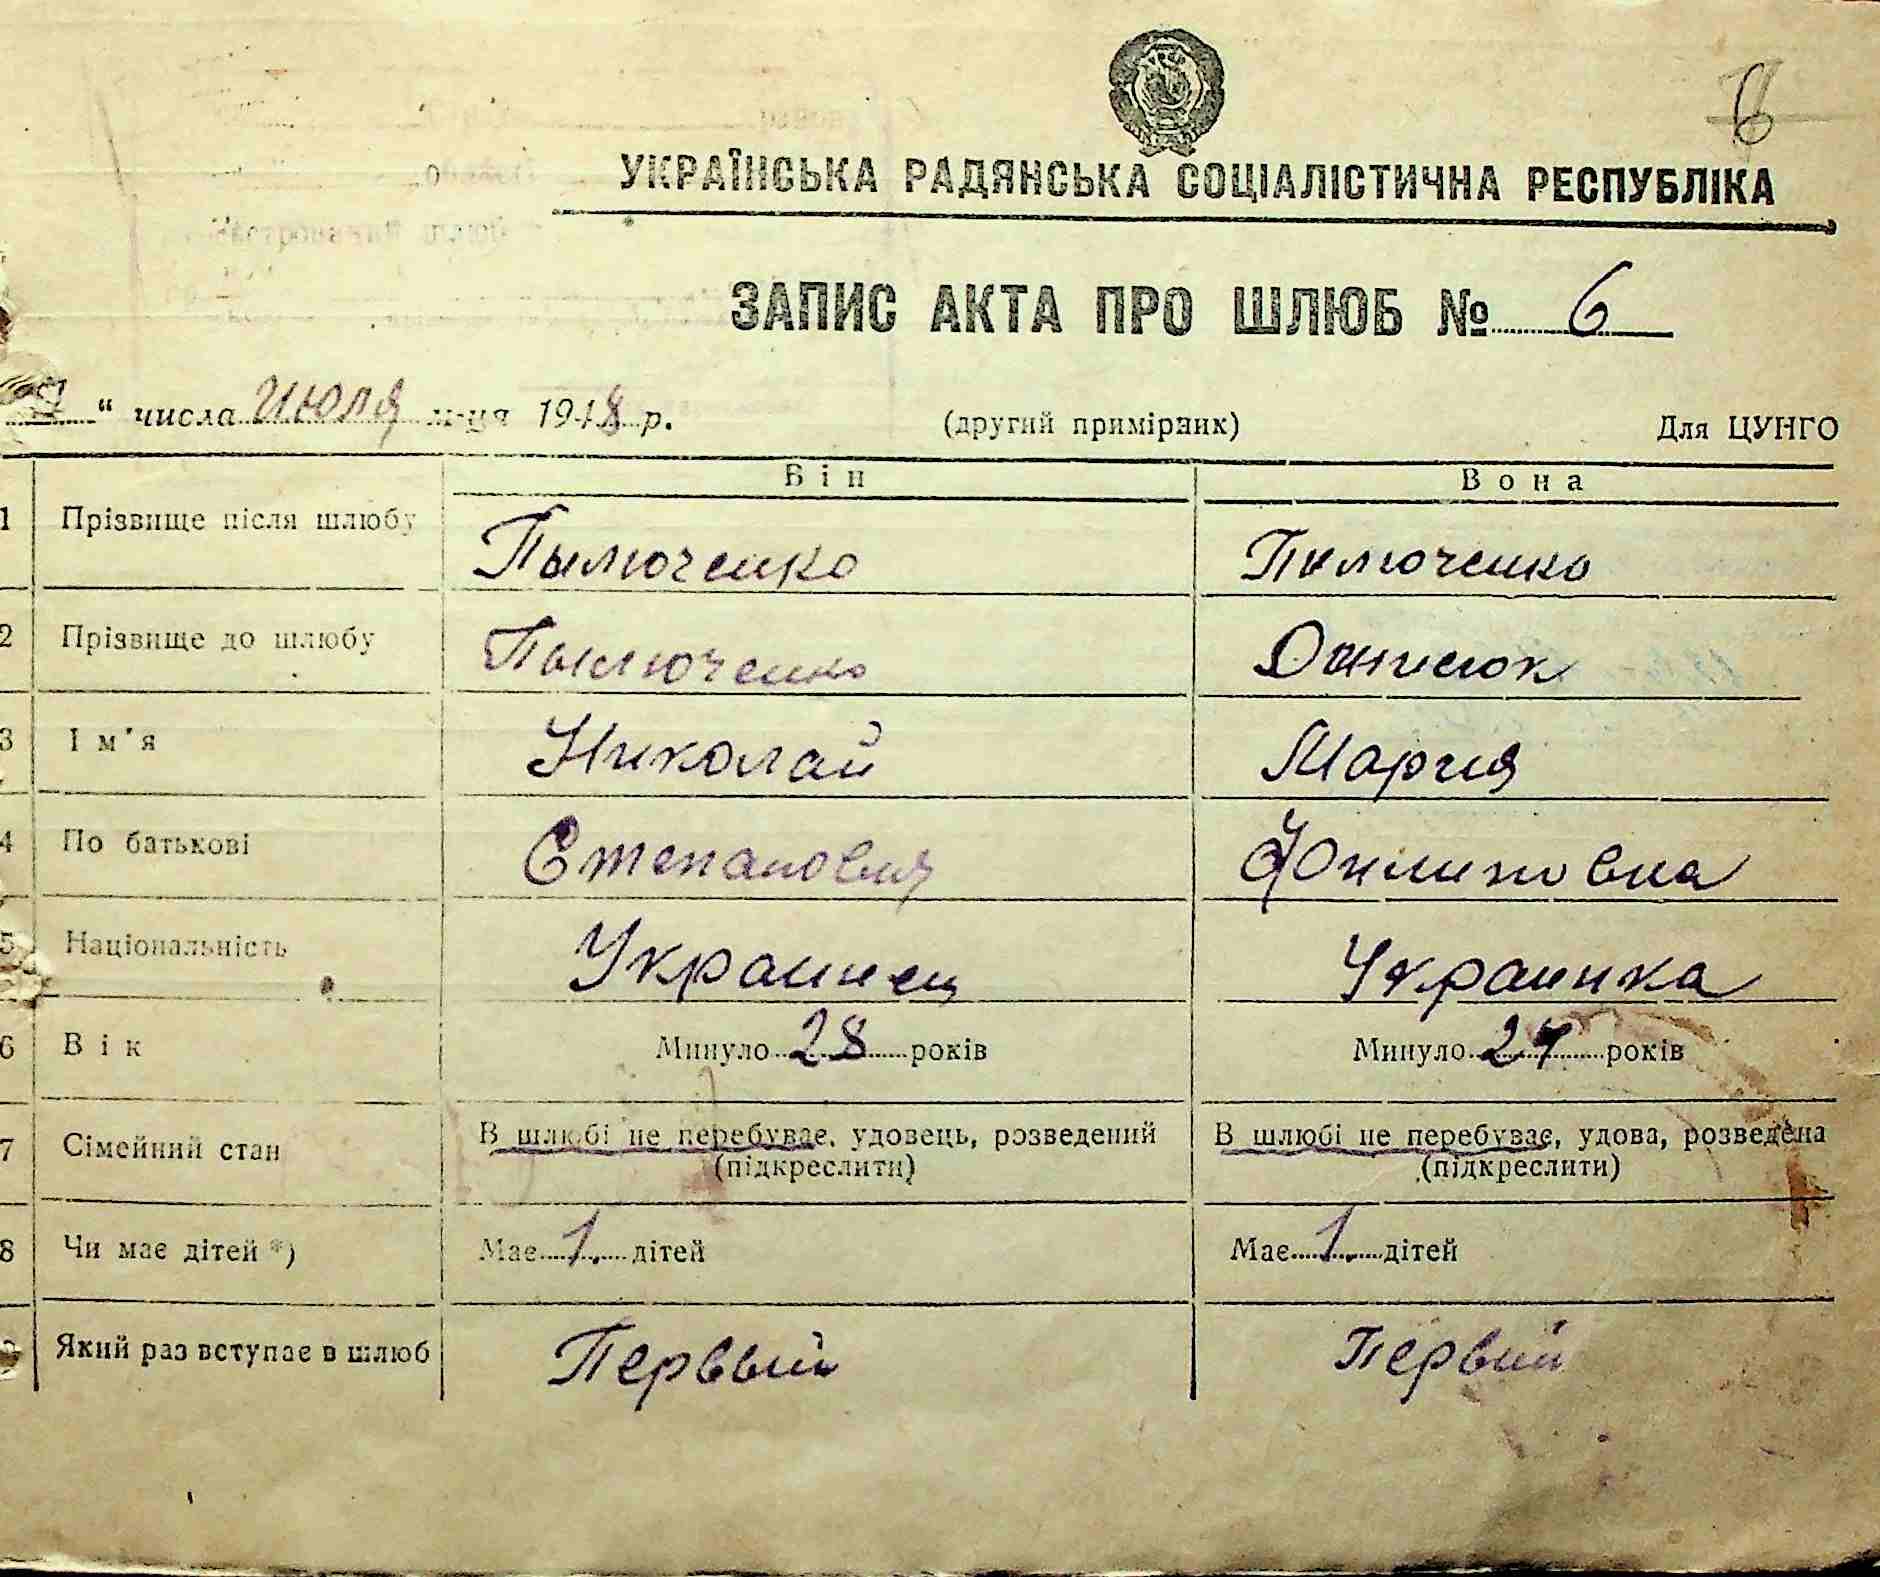 6
УКРАЇНСЬКА РАДЯНСЬКА СОЦІАЛІСТИЧНА РЕСПУБЛІКА
ЗАПИС АКТА ПРО ШЛЮБ № 6
“ числа июля м-ця 1948 р. (другий примірник) Для ЦУНГО
Він Вона
1 Прізвище після шлюбу Пылюченко Пилюченко
2 Прізвище до шлюбу Пылюченко Данилюк
3 Ім'я Николай Мария
4 По батькові Степанович Филиповна
5 Національність Украинец Украинка
6 Вік Минуло 28 років Минуло 27 років
7 Сімейний стан В шлюбі не перебуває, удовець, розведений В шлюбі не перебуває, удова, розведена
(підкреслити) (підкреслити)
8 Чи має дітей *) Має 1. дітей Має 1. дітей
9 Який раз вступає в шлюб Перввый Первый